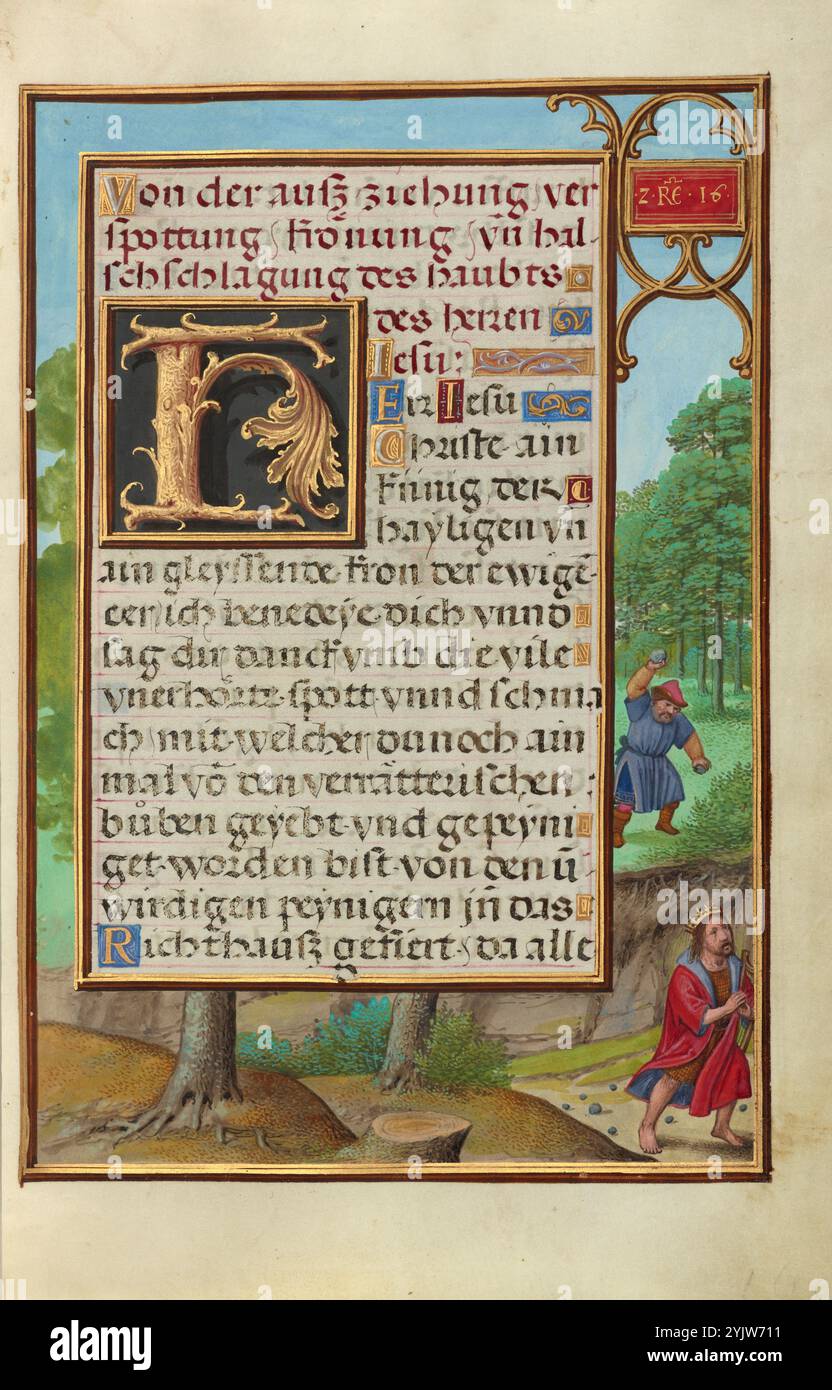 Von der ausz ziehung ver
spottung / krönung / vñ hal-
schschlagung des haubts
des herren
Iesu:
HErr Iesu
Christe ain
künig der
hayligen vñ
ain gleyssende kron der ewigē
eer ich benedeye dich vnnd
sag dir danck vmb die vile
vnerhörte spott vnnd schma
ch / mit welcher du noch ain
mal vō den verrätterischen
bůben geyebt vnd gepeyni
get worden bist von den ū
wirdigen peynigern jn das
Richthausz gefiert / da alle
2 · RE · 16 ·
alamy
Image ID: 2YJW711
www.alamy.com